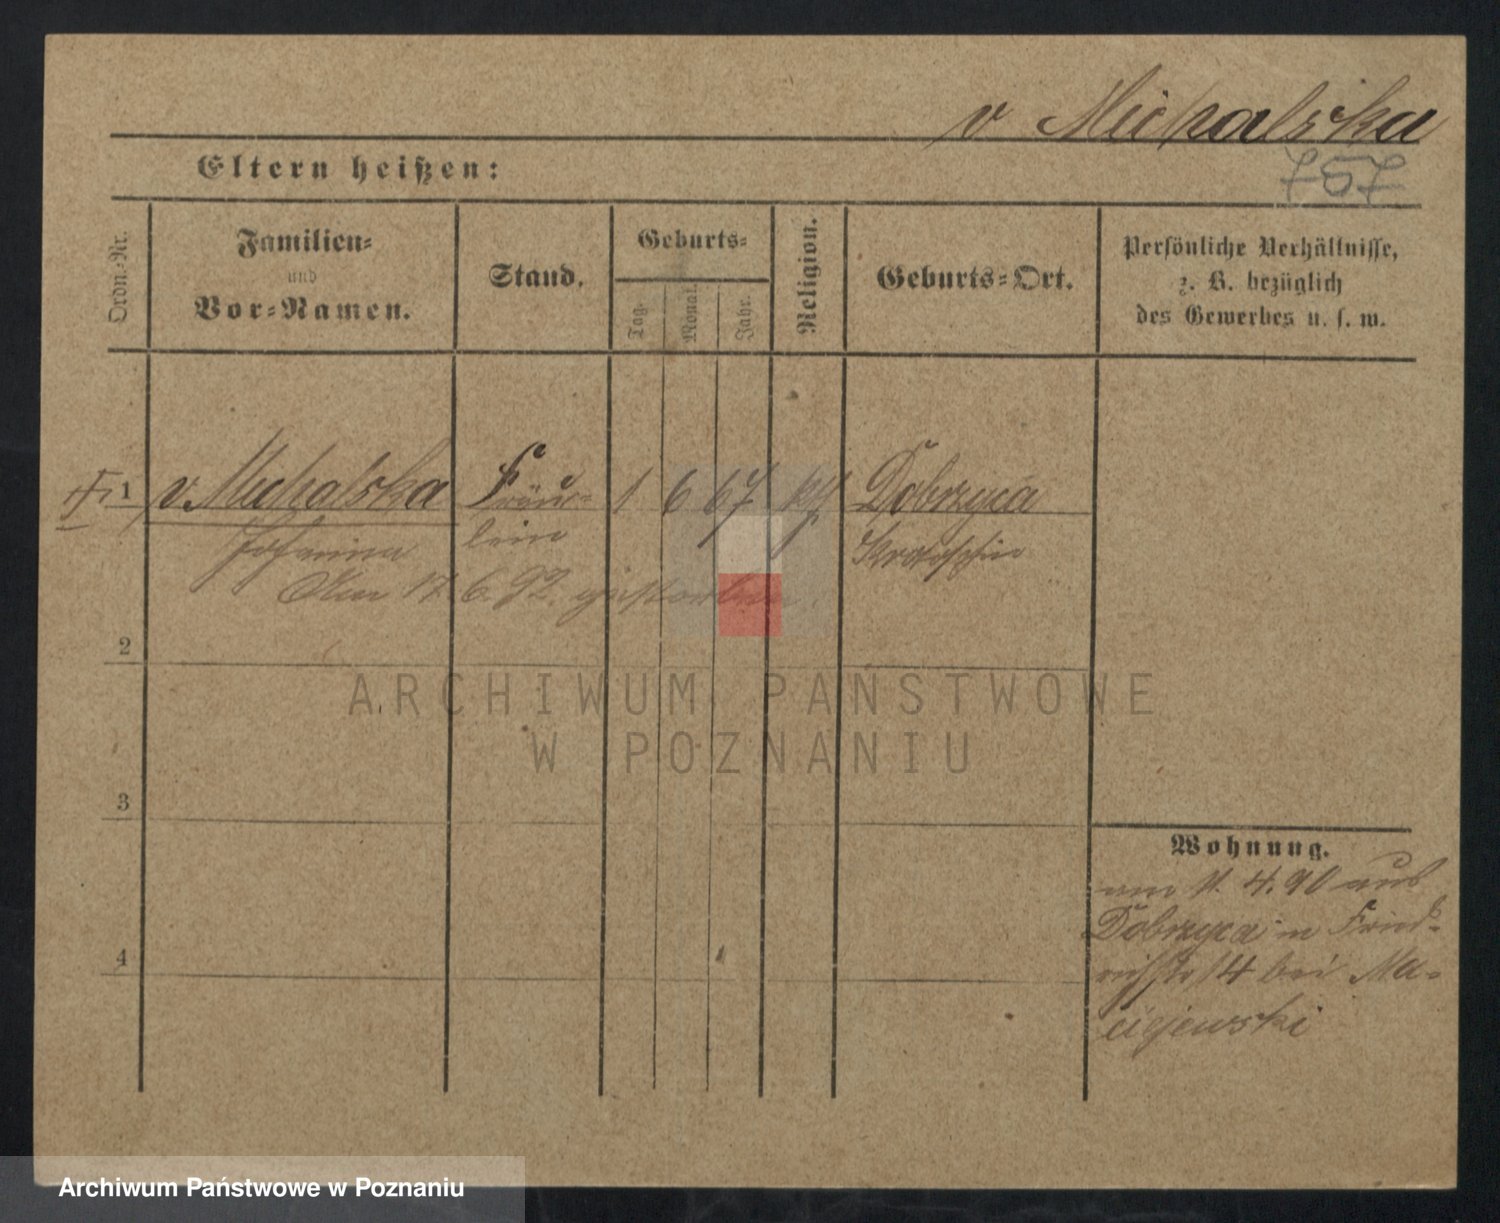 v Michalska
Eltern heißen:
757
Ordn.-Nr.
Familien-
und
Vor-Namen.
Stand.
Geburts-
Tag.
Monat.
Jahr.
Religion.
Geburts-Ort.
Persönliche Verhältnisse,
z. B. bezüglich
des Gewerbes u. s. w.
1 v Michalska Fräu- 1 6 67 kth Dobrzyca
Johanna lein Krotoschin
Am 17. 6. 92. gestorben.
2
ARCHIWUM PAŃSTWOWE
W POZNANIU
3
Wohnung.
am 11. 4. 90 aus
Dobrzyca in Fried-
richstr 14 bei Ma-
ciejewski
4
Archiwum Państwowe w Poznaniu